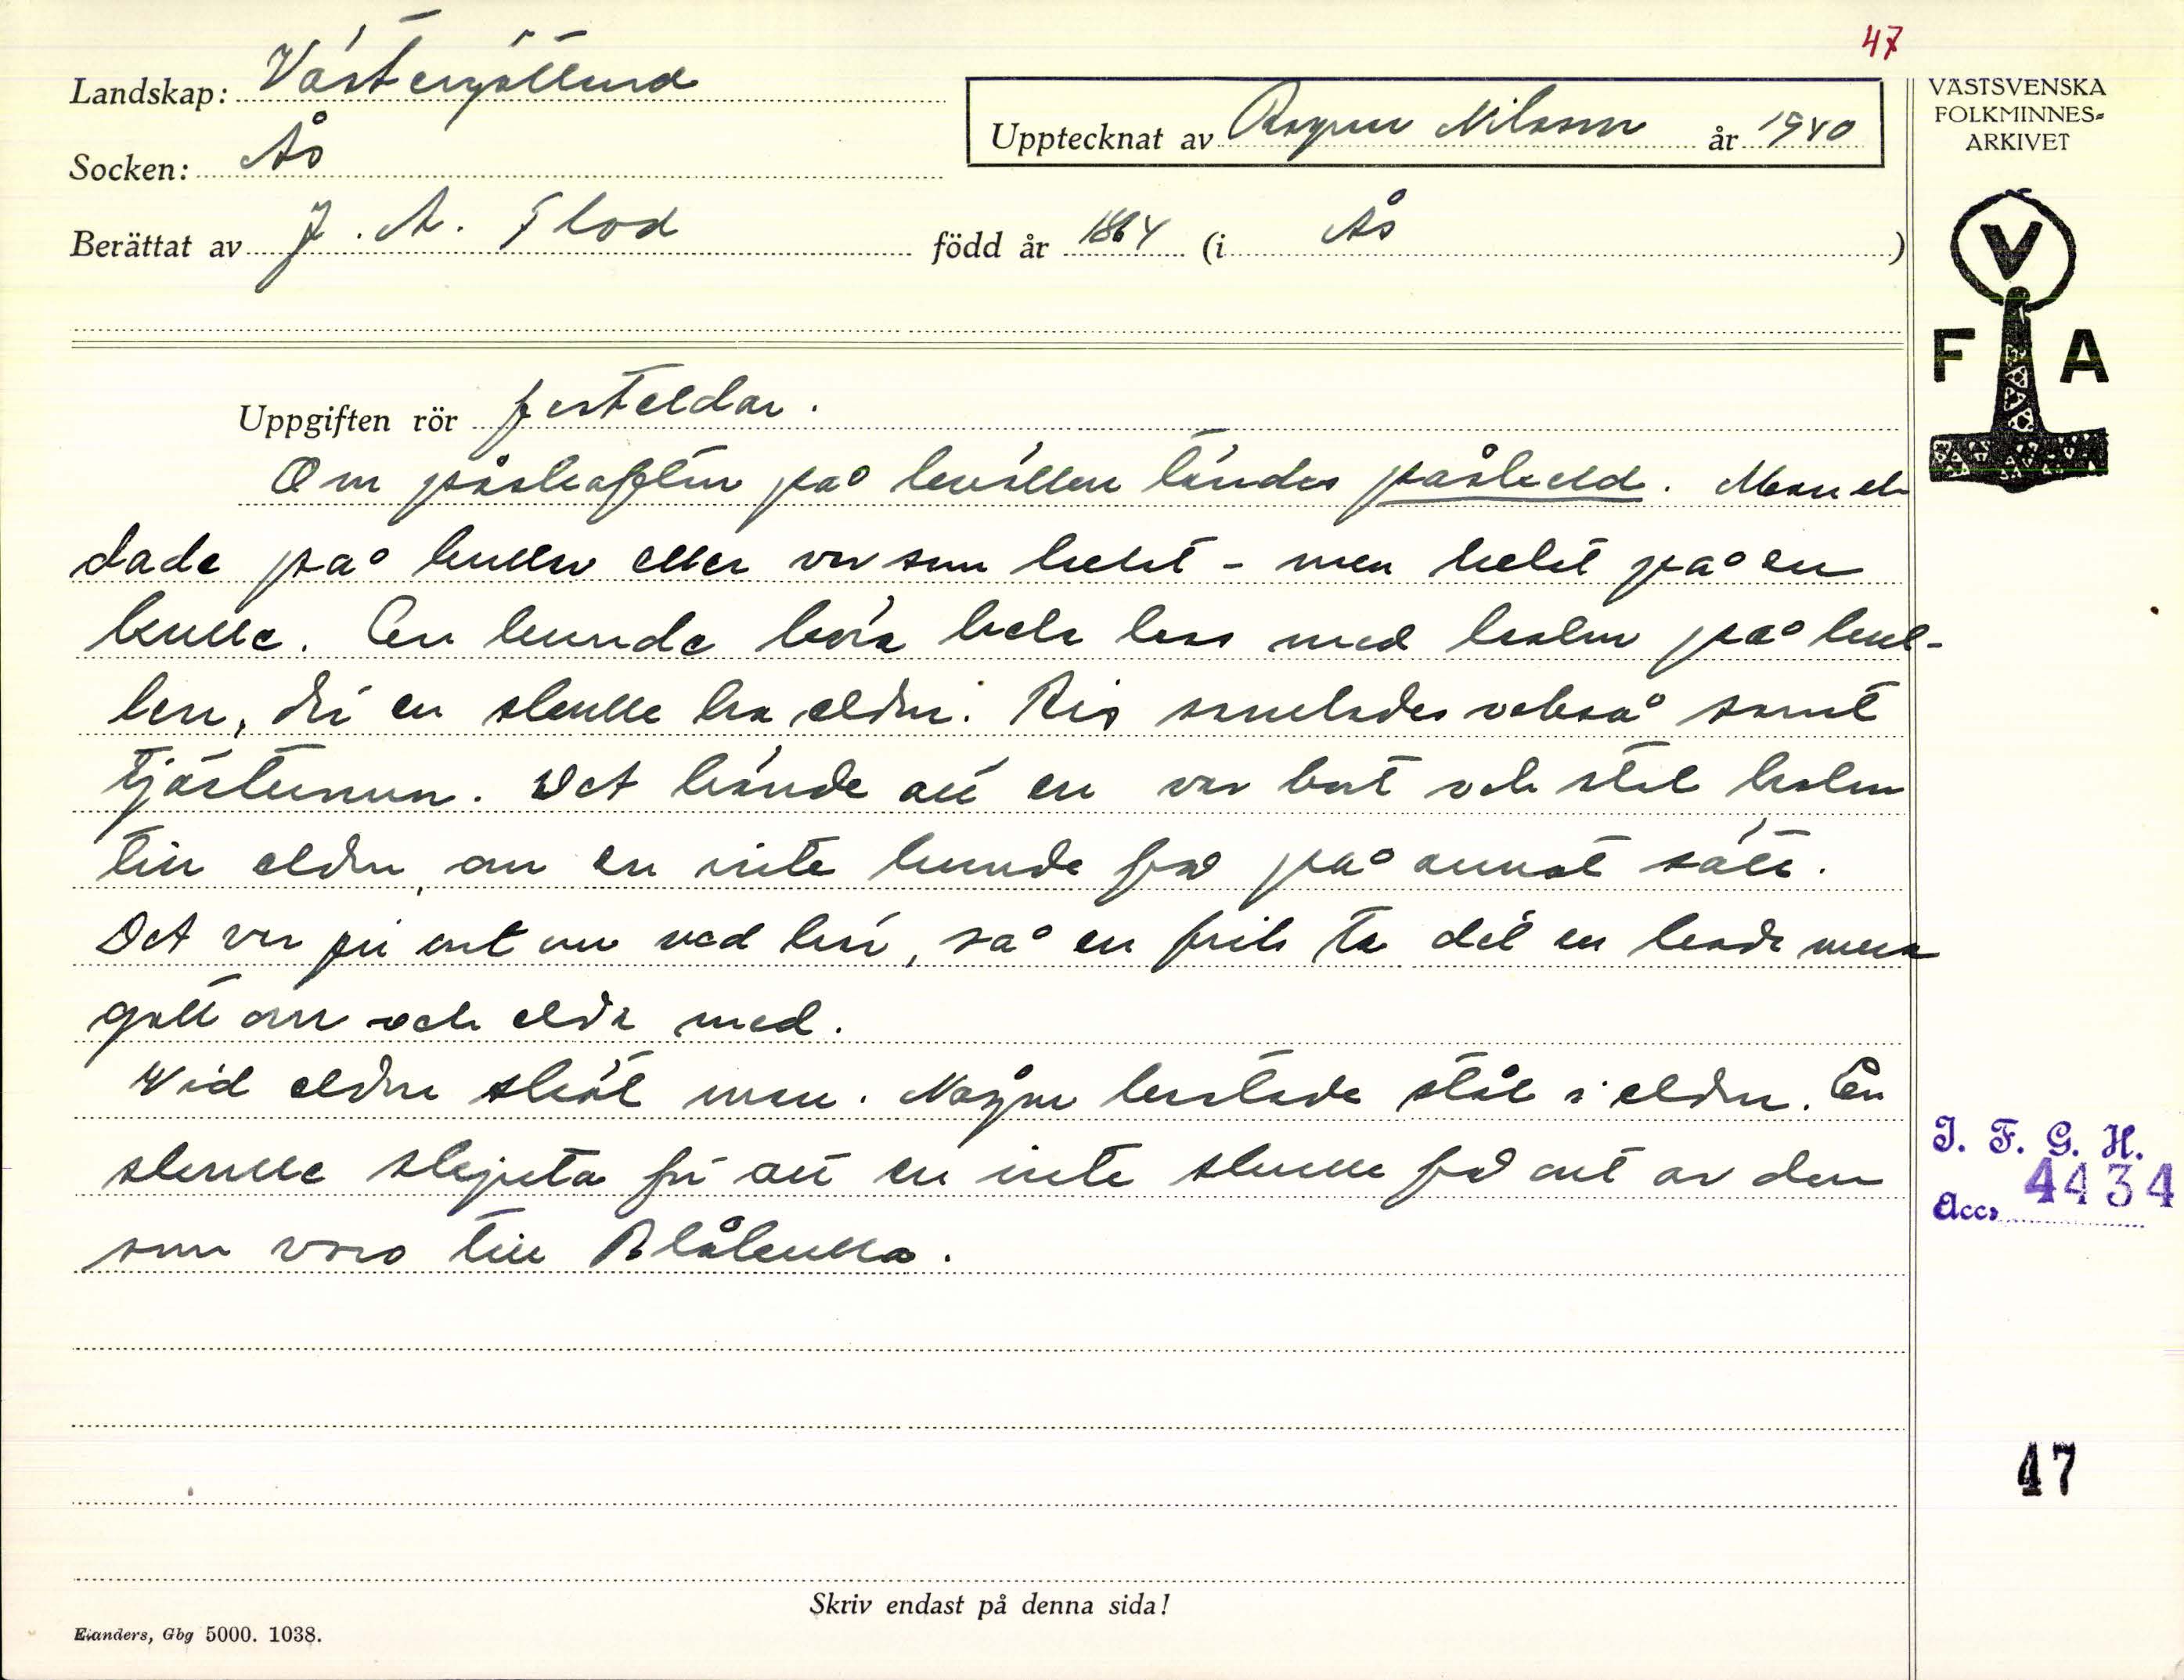 47
Landskap: Västergötland
Socken: Ås
Upptecknat av Ragnar Nilsson år 1940
Berättat av J. A. Flod född år 1864 (i Ås )
VÄSTSVENSKA
FOLKMINNES-
ARKIVET
V
F A
Uppgiften rör festeldar.
Om påskafton på kvällen tändes påskeld. Man el-
dade på kullar eller var som helst - men helst på en
kulle. En kunde köra hela lass med halm på kul-
len, där en skulle ha elden. Ris samlades också samt
tjärtunnor. Det hände att en var bort och stal halm
till elden, om en inte kunde få på annat sätt.
Det var för ont om ved här, så en fick ta det en hade mera
gott om och elda med.
Vid elden sköt man. Någon kastade stål i elden. En
skulle skjuta för att en inte skulle få ont av dem
som voro till Blåkulla.
I. F. G. H.
Acc. 4434
47
Skriv endast på denna sida!
Elanders, Gbg 5000. 1038.